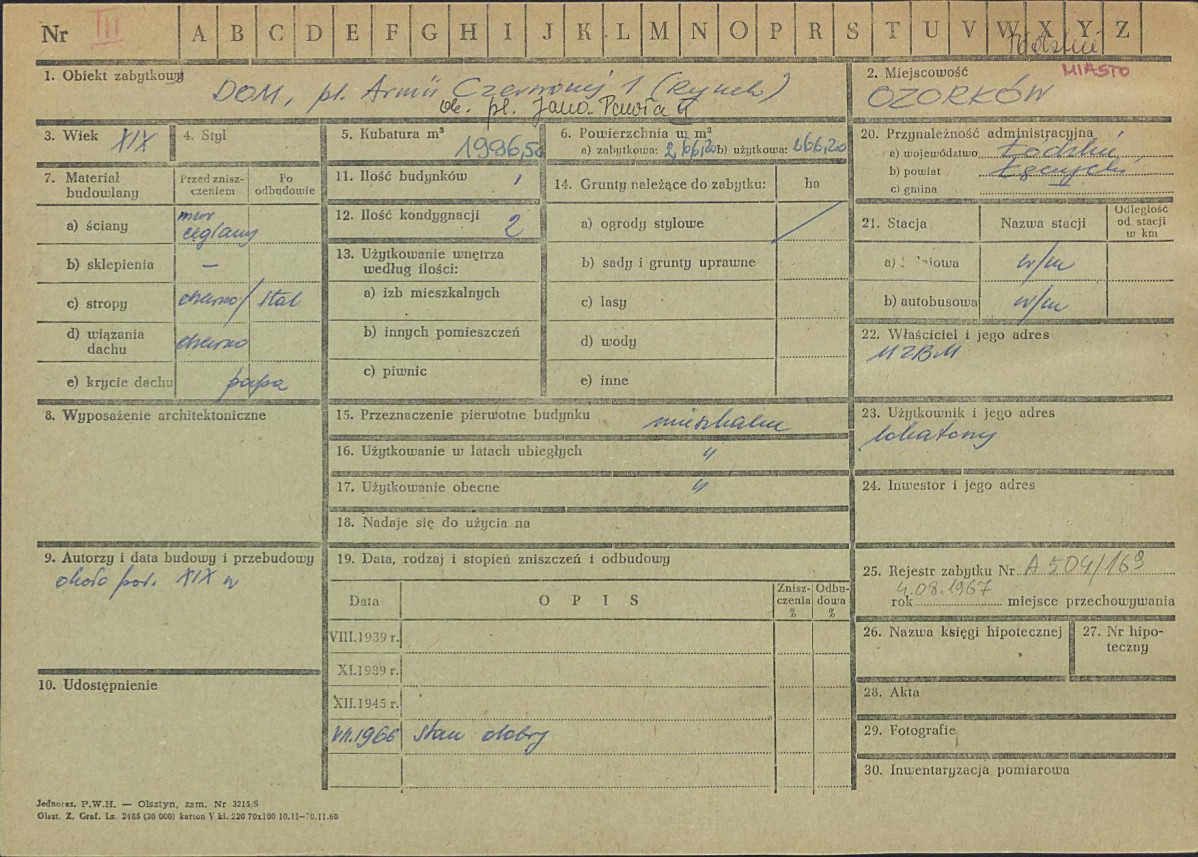 Nr III A B C D E F G H I J K L M N O P R S T U V W X Y Z
1. Obiekt zabytkowy
DOM, pl. Armii Czerwonej 1 (Rynek)
ob. pl. Jana Pawła II
2. Miejscowość
MIASTO
OZORKÓW
3. Wiek XIX
4. Styl
5. Kubatura m³
1996,50
6. Powierzchnia w m²
a) zabytkowa: 266,20 b) użytkowa: 266,20
20. Przynależność administracyjna
a) województwo Łódzkie
b) powiat Łęczycki
c) gmina
7. Materiał budowlany
Przed zniszczeniem
Po odbudowie
a) ściany
mur
ceglany
b) sklepienia —
c) stropy drewno/ stal
d) wiązania dachu drewno
e) krycie dachu papa
11. Ilość budynków 1
12. Ilość kondygnacji 2
13. Użytkowanie wnętrza
według ilości:
a) izb mieszkalnych
b) innych pomieszczeń
c) piwnic
14. Grunty należące do zabytku: ha
a) ogrody stylowe
b) sady i grunty uprawne
c) lasy
d) wody
e) inne
21. Stacja
Nazwa stacji
Odległość
od stacji
w km
a) w/m
b) autobusowa w/m
22. Właściciel i jego adres
MZBM
8. Wyposażenie architektoniczne
15. Przeznaczenie pierwotne budynku mieszkalne
16. Użytkowanie w latach ubiegłych "
17. Użytkowanie obecne "
18. Nadaje się do użycia na
23. Użytkownik i jego adres
lokatorzy
24. Inwestor i jego adres
9. Autorzy i data budowy i przebudowy
około poł. XIX w
10. Udostępnienie
19. Data, rodzaj i stopień zniszczeń i odbudowy
Data
O P I S
Zniszczenia %
Odbudowa %
VIII.1939 r.
XI.1939 r.
XII.1945 r.
VII.1966 stan dobry
25. Rejestr zabytku Nr A 504/169
4.08.1967
rok miejsce przechowywania
26. Nazwa księgi hipotecznej
27. Nr hipoteczny
28. Akta
29. Fotografie
30. Inwentaryzacja pomiarowa
Jednoraz. P.W.H. — Olsztyn, zam. Nr 3215/S
Olszt. Z. Graf. Lz. 2485 (30 000) karton V kl. 220 70x100 10.11—30.11.60